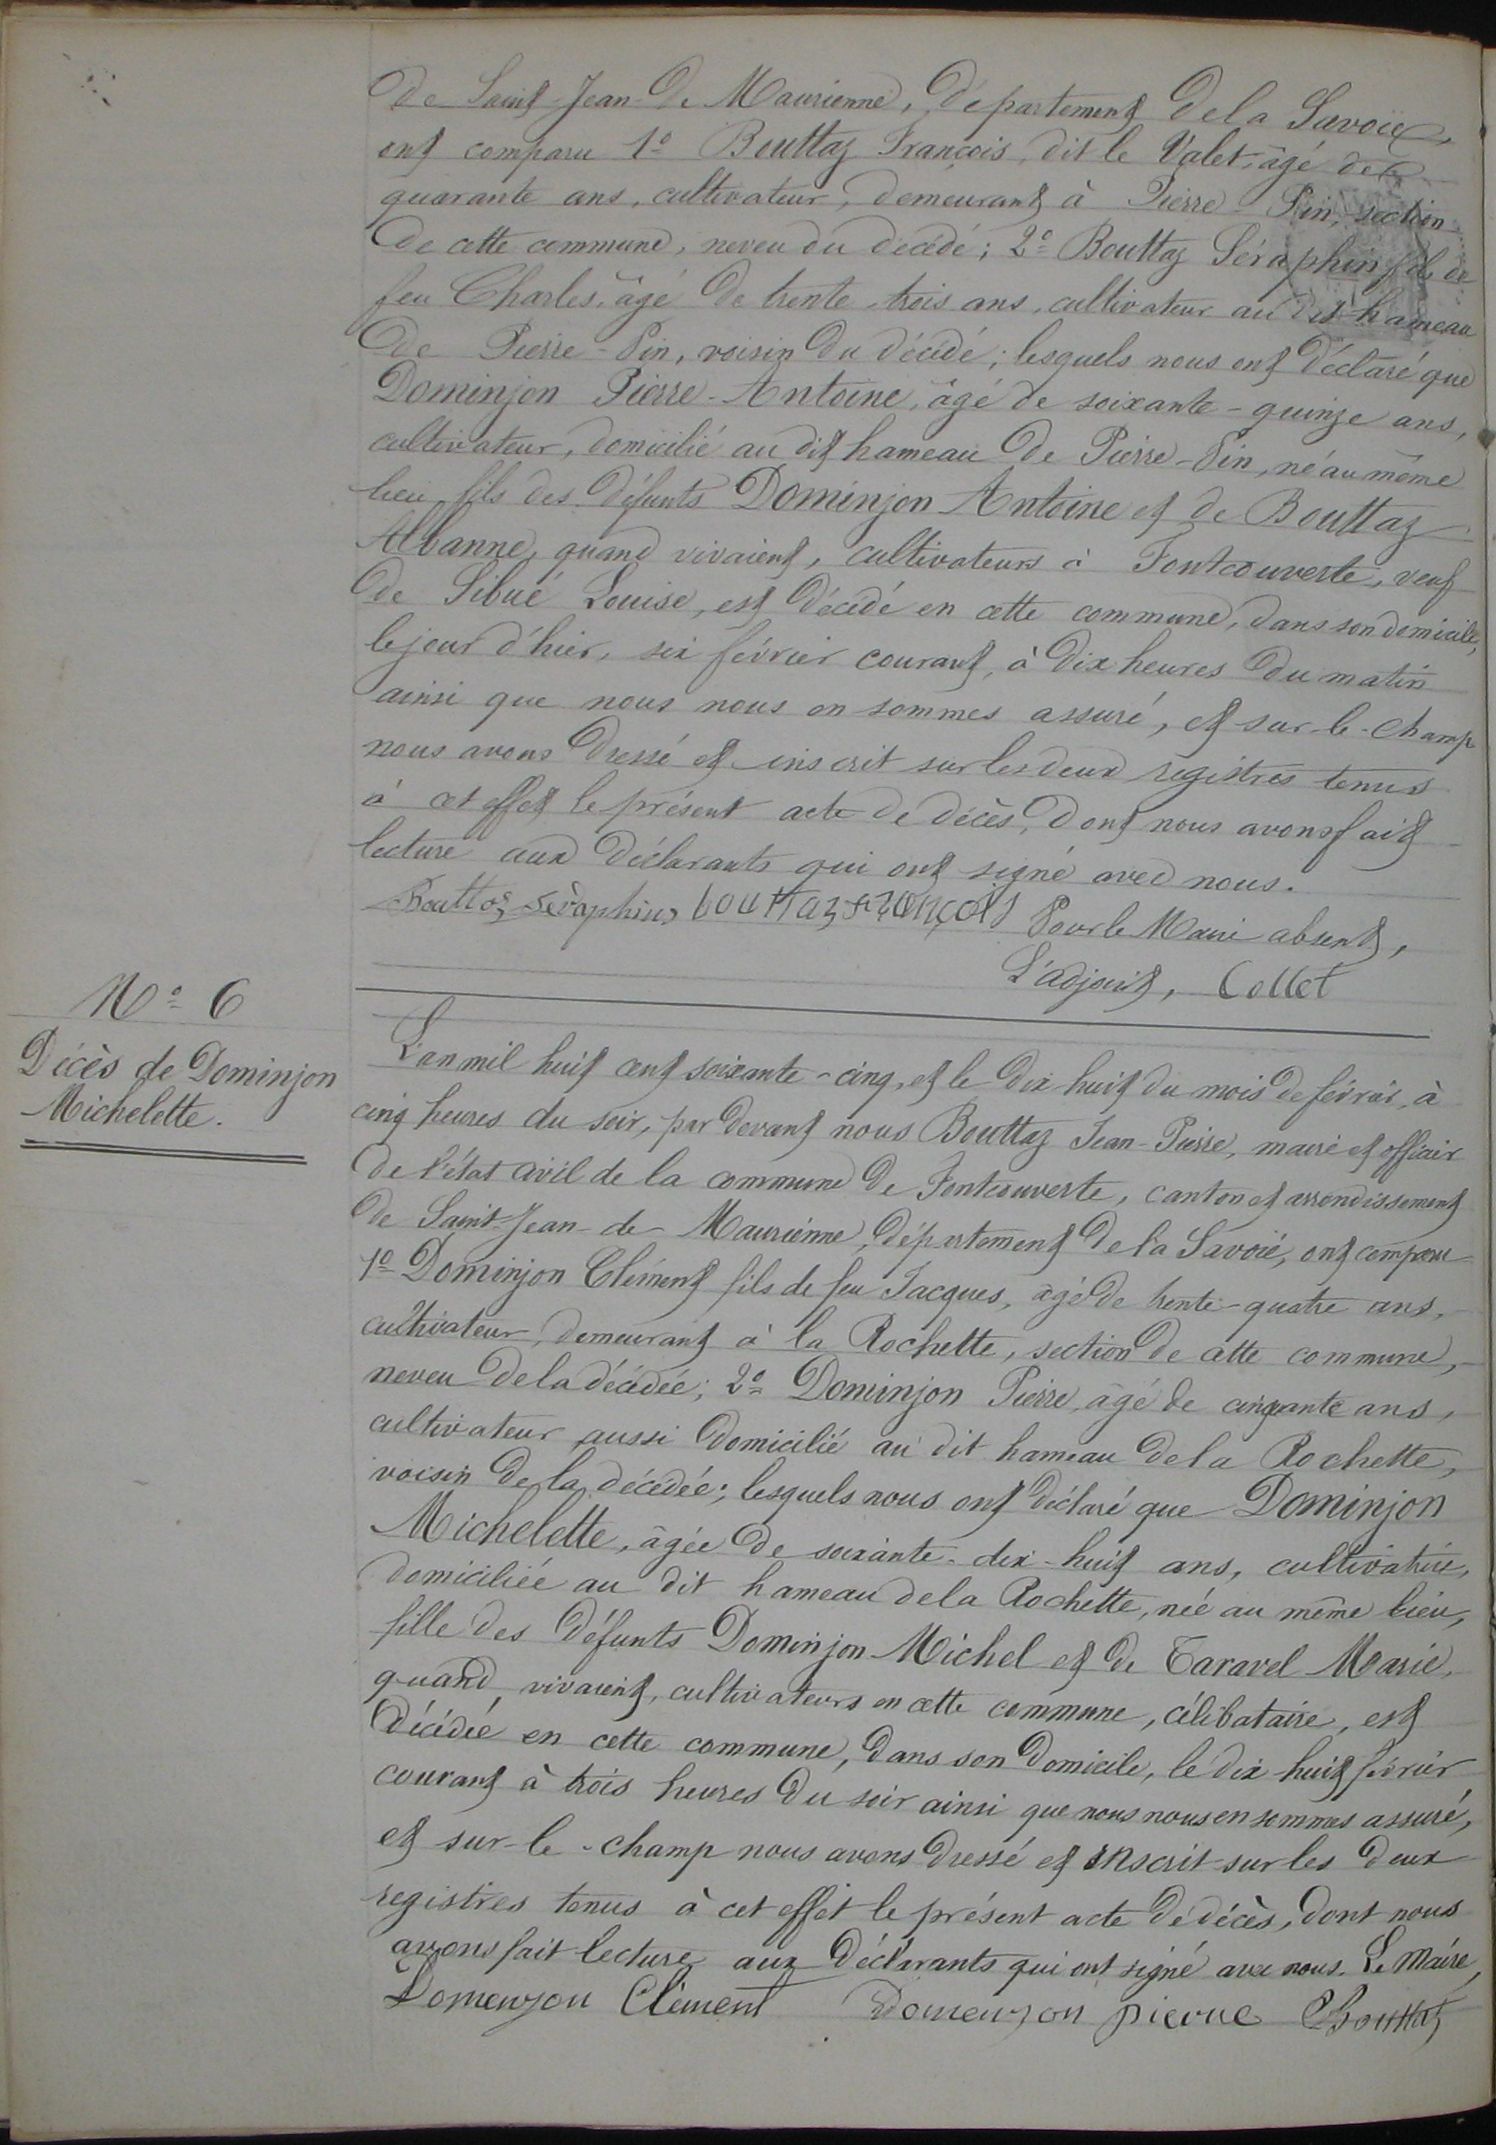 de Saint-Jean-de Maurienne, département de la Savoie,
ont comparu 1º Bouttaz François, dit le Valet, âgé de
quarante ans, cultivateur, demeurant à Pierre-Pin, section
de cette commune, neveu du décédé; 2º Bouttaz Séraphin fils de
feu Charles, âgé de trente-trois ans, cultivateur au dit hameau
de Pierre-Pin, voisin du décédé; lesquels nous ont déclaré que
Dominjon Pierre-Antoine, âgé de soixante-quinze ans,
cultivateur, domicilié au dit hameau de Pierre-Pin, né au même
lieu, fils des défunts Dominjon Antoine et de Bouttaz
Albanne, quand vivaient, cultivateurs à Fontcouverte, veuf
de Sibué Louise, est décédé en cette commune, dans son domicile,
le jour d'hier, six février courant, à dix heures du matin
ainsi que nous nous en sommes assuré, et sur-le-champ
nous avons dressé et inscrit sur les deux registres tenus
à cet effet le présent acte de décès, dont nous avons fait
lecture aux déclarants qui ont signé avec nous.
Bouttaz Séraphin, bouttaz françois Pour le Maire absent,
L'adjoint, Collet
Nº 6
Décès de Dominjon
Michelette.
L'an mil huit cent soixante-cinq, et le dix huit du mois de février, à
cinq heures du soir, par devant nous Bouttaz Jean-Pierre, maire et officier
de l'état civil de la commune de Fontcouverte, canton et arrondissement
de Saint-Jean-de-Maurienne, département de la Savoie, ont comparu
1º Dominjon Clément fils de feu Jacques, âgé de trente-quatre ans,
cultivateur, demeurant à la Rochette, section de cette commune,
neveu de la décédée; 2º Dominjon Pierre, âgé de cinquante ans,
cultivateur aussi domicilié au dit hameau de la Rochette,
voisin de la décédée; lesquels nous ont déclaré que Dominjon
Michelette, âgée de soixante-dix-huit ans, cultivatrice,
domiciliée au dit hameau de la Rochette, née au même lieu,
fille des défunts Dominjon Michel et de Taravel Marie,
quand vivaient, cultivateurs en cette commune, célibataire, est
décédée en cette commune, dans son domicile, le dix huit février
courant à trois heures du soir ainsi que nous nous en sommes assuré,
et sur-le-champ nous avons dressé et inscrit sur les deux
registres tenus à cet effet le présent acte de décès, dont nous
avons fait lecture aux déclarants qui ont signé avec nous. Le Maire,
Domenjon Clément Domenjon pierre Bouttaz